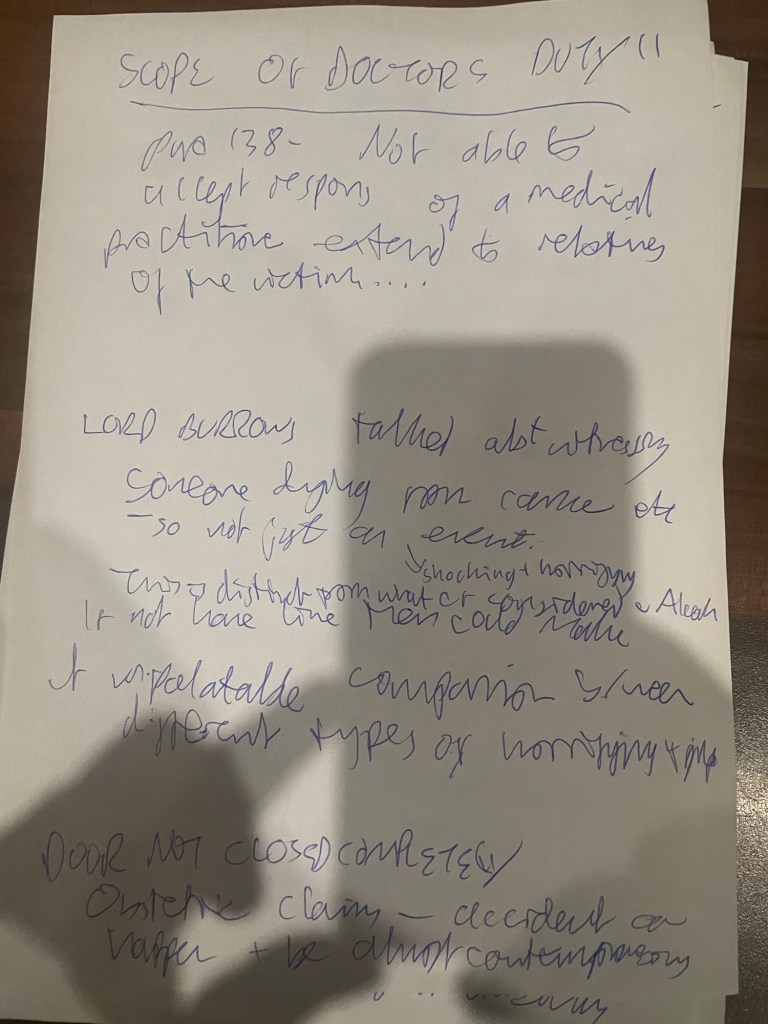 SCOPE OF DOCTORS DUTY"
para 138- Not able to
accept respons of a medical
practitione extend to relatives
of the victim....
LORD BURROWS talked abt witnessing
someone dying from cance etc
- so not just an event.
shocking + horrifying
This is distinct from what ct considered in Alcock
If not have line then could make
it unpalatable comparison b/ween
different types of horrifying +
DOOR NOT CLOSED COMPLETELY
Obstetric claims - accident can
happen + be almost contemporaneous